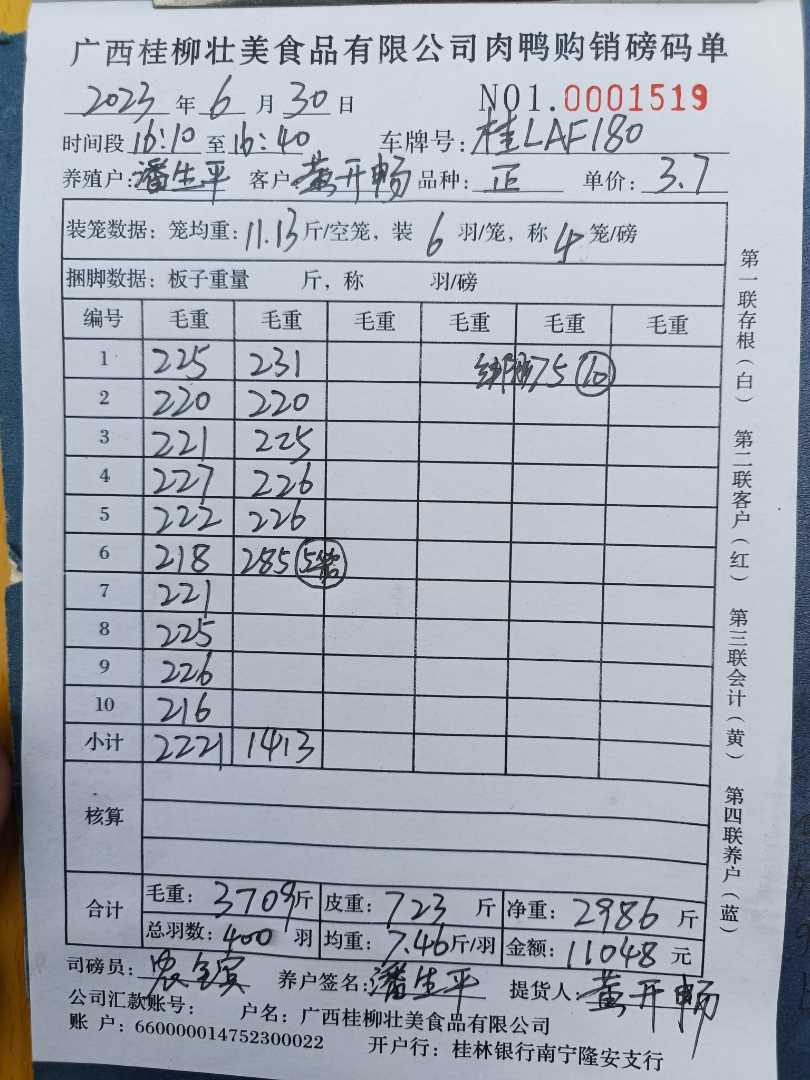 广西桂柳壮美食品有限公司肉鸭购销磅码单
2023 年 6 月 30 日 NO1.0001519
时间段 16:10 至 16:40 车牌号: 桂LAF180
养殖户: 潘生平 客户: 黄开畅 品种: 正 单价: 3.7
装笼数据: 笼均重: 11.13 斤/空笼, 装 6 羽/笼, 称 4 笼/磅
捆脚数据: 板子重量 斤, 称 羽/磅
编号 毛重 毛重 毛重 毛重 毛重 毛重
1 225 231 75 10
2 220 220
3 221 225
4 227 226
5 222 226
6 218 285 5笼
7 221
8 225
9 226
10 216
小计 2221 1413
核算
合计 毛重: 3709 斤 皮重: 723 斤 净重: 2986 斤
总羽数: 400 羽 均重: 7.46 斤/羽 金额: 11048 元
司磅员: 养户签名: 潘生平 提货人: 黄开畅
公司汇款账号: 户名: 广西桂柳壮美食品有限公司
账 户: 660000014752300022 开户行: 桂林银行南宁隆安支行
第一联存根(白) 第二联客户(红) 第三联会计(黄) 第四联养户(蓝)